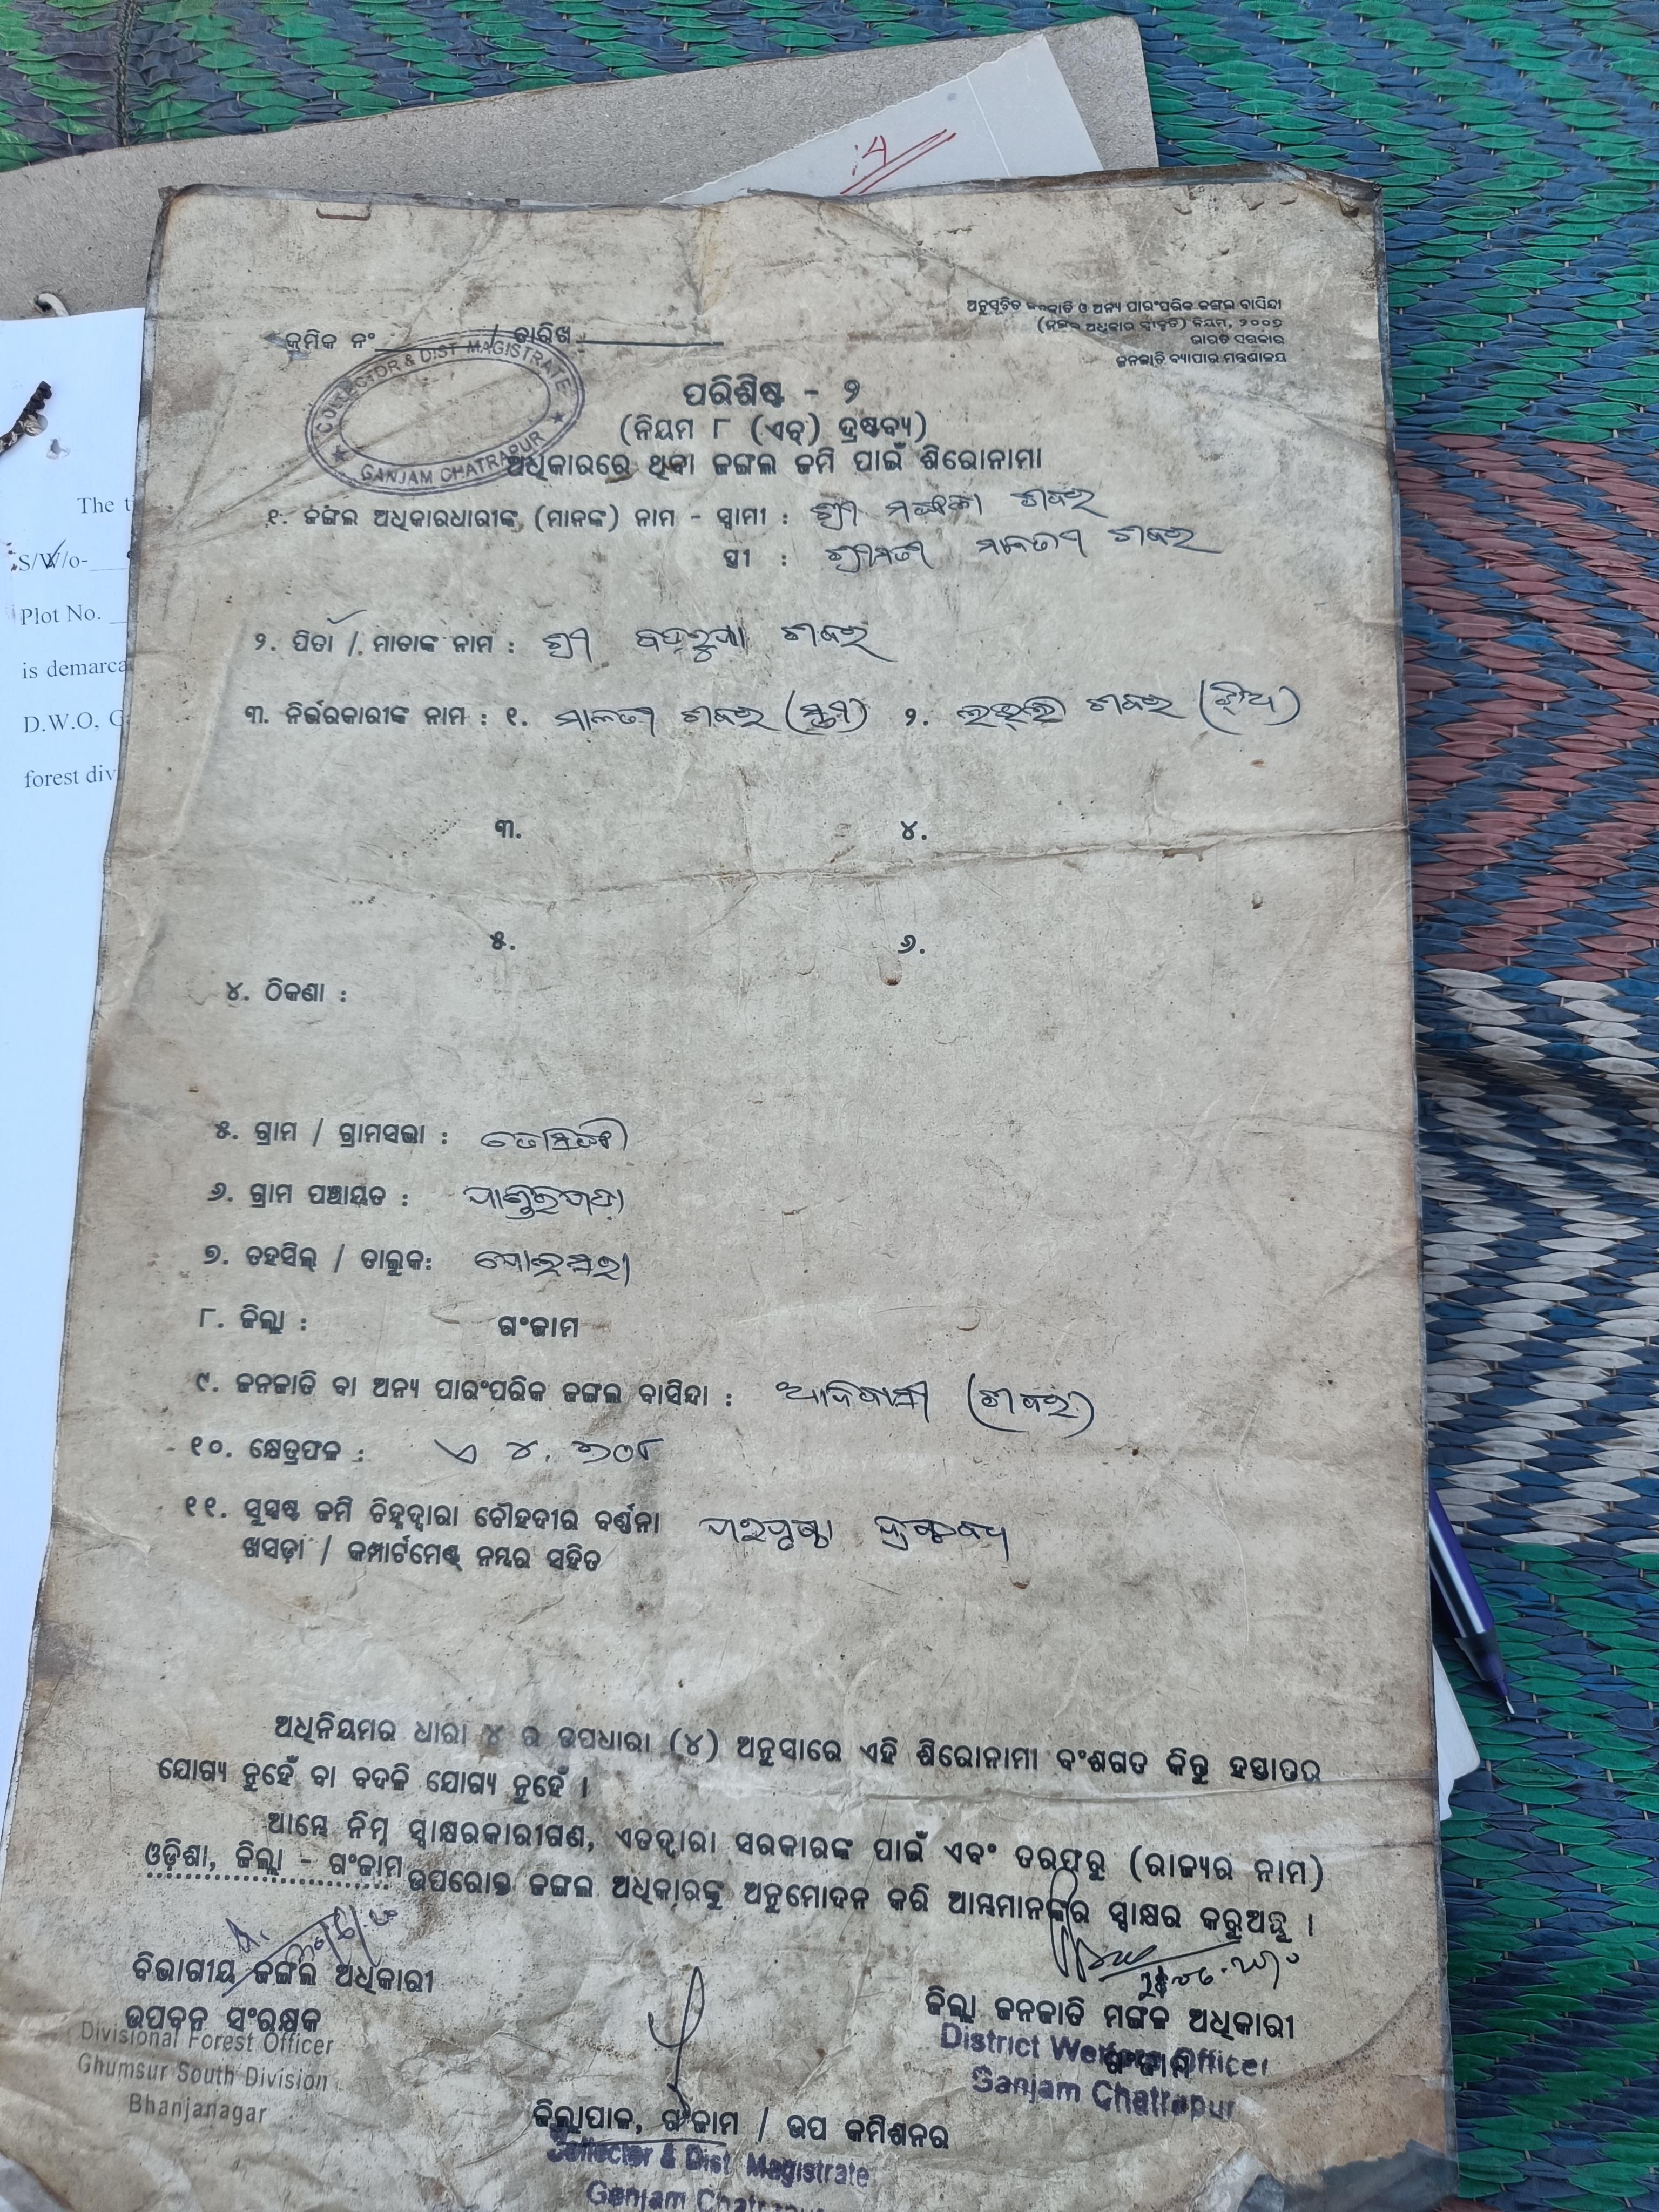 :4
ଅନୁସୂଚିତ ଜନଜାତି ଓ ଅନ୍ୟ ପାରଂପରିକ ଜଙ୍ଗଲ ବାସିନ୍ଦା
(ଜଙ୍ଗଲ ଅଧିକାର ସ୍ୱୀକୃତି) ନିୟମ, ୨୦୦୭
ଭାରତ ସରକାର
ଜନଜାତି ବ୍ୟାପାର ମନ୍ତ୍ରଣାଳୟ
କ୍ରମିକ ନଂ / ତାରିଖ
COLLECTOR & DIST MAGISTRATE
GANJAM CHATRAPUR
ପରିଶିଷ୍ଟ - ୨
(ନିୟମ ୮ (ଏଚ୍) ଦ୍ରଷ୍ଟବ୍ୟ)
ଅଧିକାରରେ ଥିବା ଜଙ୍ଗଲ ଜମି ପାଇଁ ଶିରୋନାମା
୧. ଜଙ୍ଗଲ ଅଧିକାରଧାରୀଙ୍କ (ମାନଙ୍କ) ନାମ - ସ୍ୱାମୀ : ଶ୍ରୀ ଶବର
ସ୍ତ୍ରୀ : ଶ୍ରୀମତୀ ମାଳତୀ ଶବର
୨. ପିତା / ମାତାଙ୍କ ନାମ : ଶ୍ରୀ ଶବର
୩. ନିର୍ଭରକାରୀଙ୍କ ନାମ : ୧. ମାଳତୀ ଶବର (ସ୍ତ୍ରୀ) ୨. ଶବର (ଝିଅ)
୩. ୪.
୫. ୬.
୪. ଠିକଣା :
୫. ଗ୍ରାମ / ଗ୍ରାମସଭା :
୬. ଗ୍ରାମ ପଞ୍ଚାୟତ :
୭. ତହସିଲ୍ / ତାଲୁକ: ସୋରଡ଼ା
୮. ଜିଲ୍ଲା : ଗଂଜାମ
୯. ଜନଜାତି ବା ଅନ୍ୟ ପାରଂପରିକ ଜଙ୍ଗଲ ବାସିନ୍ଦା : ଆଦିବାସୀ (ଶବର)
୧୦. କ୍ଷେତ୍ରଫଳ : ଏ ୪.୭୦୮
୧୧. ସୁସ୍ପଷ୍ଟ ଜମି ଚିହ୍ନଦ୍ୱାରା ଚୌହଦୀର ବର୍ଣ୍ଣନା ପରପୃଷ୍ଠା ଦ୍ରଷ୍ଟବ୍ୟ
ଖସଡ଼ା / କମ୍ପାର୍ଟମେଣ୍ଟ୍ ନମ୍ବର ସହିତ
ଅଧିନିୟମର ଧାରା ୪ ର ଉପଧାରା (୪) ଅନୁସାରେ ଏହି ଶିରୋନାମା ବଂଶଗତ କିନ୍ତୁ ହସ୍ତାନ୍ତର
ଯୋଗ୍ୟ ନୁହେଁ ବା ବଦଳି ଯୋଗ୍ୟ ନୁହେଁ ।
ଆମ୍ଭେ ନିମ୍ନ ସ୍ୱାକ୍ଷରକାରୀଗଣ, ଏତଦ୍ୱାରା ସରକାରଙ୍କ ପାଇଁ ଏବଂ ତରଫରୁ (ରାଜ୍ୟର ନାମ)
ଓଡ଼ିଶା, ଜିଲ୍ଲା - ଗଂଜାମ ଉପରୋକ୍ତ ଜଙ୍ଗଲ ଅଧିକାରଙ୍କୁ ଅନୁମୋଦନ କରି ଆମ୍ଭମାନଙ୍କର ସ୍ୱାକ୍ଷର କରୁଅଛୁ ।
ବିଭାଗୀୟ ଜଙ୍ଗଲ ଅଧିକାରୀ
ଉପବନ ସଂରକ୍ଷକ
Divisional Forest Officer
Ghumsur South Division
Bhanjanagar
ଜିଲ୍ଲା ଜନଜାତି ମଙ୍ଗଳ ଅଧିକାରୀ
ଗଂଜାମ
District Welfare Officer
Ganjam Chatrapur
ଜିଲ୍ଲାପାଳ, ଗଂଜାମ / ଉପ କମିଶନର
Collector & Dist Magistrate
Ganjam Chatrapur
The t
S/W/o-
Plot No.
is demarca
D.W.O, G
forest div